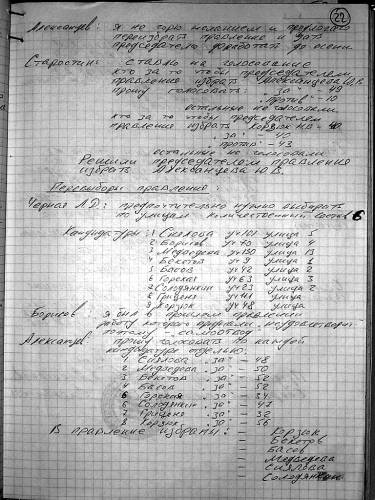 22
Александров: я не горю желанием и предлагаю
переизбрать правление и дать
председателю доработать до осени
Старостин: ставлю на голосование
кто за то чтобы председателем
правления избрать Александрова Ю.В.
прошу голосовать. "за" - 49
"против" - 10
остальные не голосовали
кто за то чтобы председателем
правления избрать Корзюк
"за" - 40
"против" - 43
остальные не голосовали
Решили председателем правления
избрать Александрова Ю.В.
Перевыборы правления:
Черная Л.Д: предпочтительно нужно выбирать
по улицам. количественный состав 6
Кандидатуры: 1 Сиялова уч 101 улица 5
2 Борисов уч 70 улица 4
3 Медведева уч 130 улица 13
4 Бекетов уч 9 улица 1
5 Басов уч 42 улица 2
6 Горская уч 63 улица 3
7 Солодянкин уч 23 улица 2
8 Гриценя уч 41 улица
9 Корзюк уч 48 улица
Борисов: я был в прошлом правлении
работу которого признали неудовлетворит
поэтому - самоотвод
Александров: прошу голосовать по каждой
кандидатуре отдельно:
Сиялова "за" - 48
2 Медведева "за" - 50
3 Бекетов "за" - 52
4 Басов "за" - 52
5 Горская "за" - 34
6 Солодянкин "за" - 47
7 Гриценя "за" - 32
8 Корзюк "за" - 56
В правление избраны: - Корзюк
- Бекетов
- Басов
- Медведева
- Сиялова
- Солодянкин